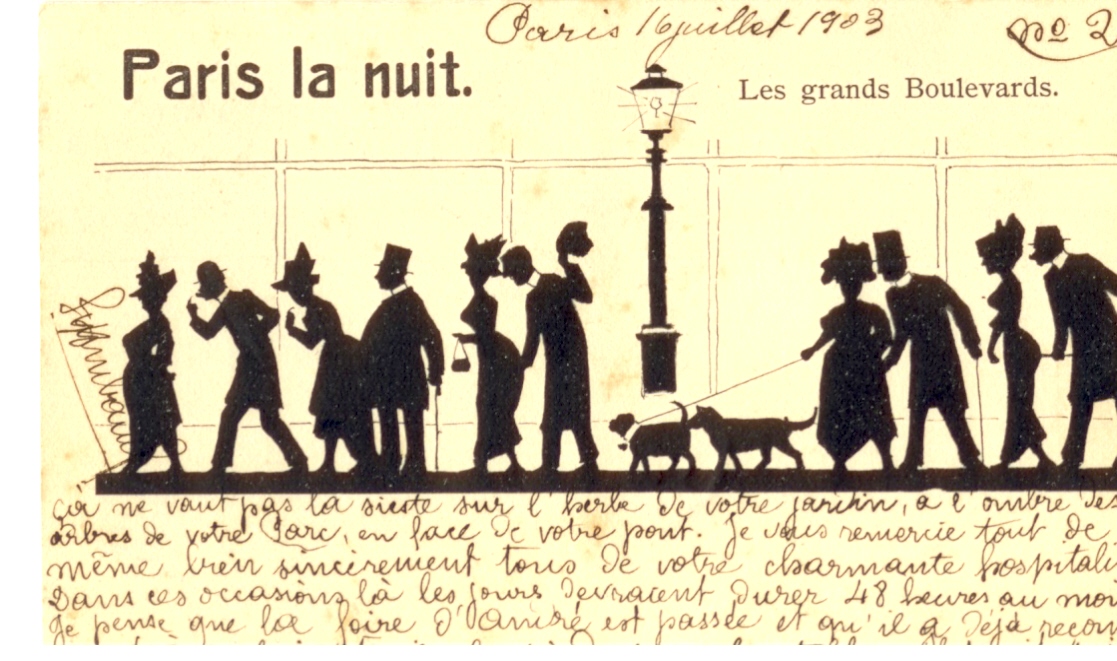 Paris 16 juillet 1903
No 2
Paris la nuit.
Les grands Boulevards.
ça ne vaut pas la sieste sur l'herbe de votre jardin, à l'ombre de
arbres de votre Parc, en face de votre pont. Je vous remercie tout de
même bien sincèrement tous de votre charmante hospitali
Dans ces occasions là les jours devraient durer 48 heures au mo
Je pense que la foire d'André est passée et qu'il a déjà recom